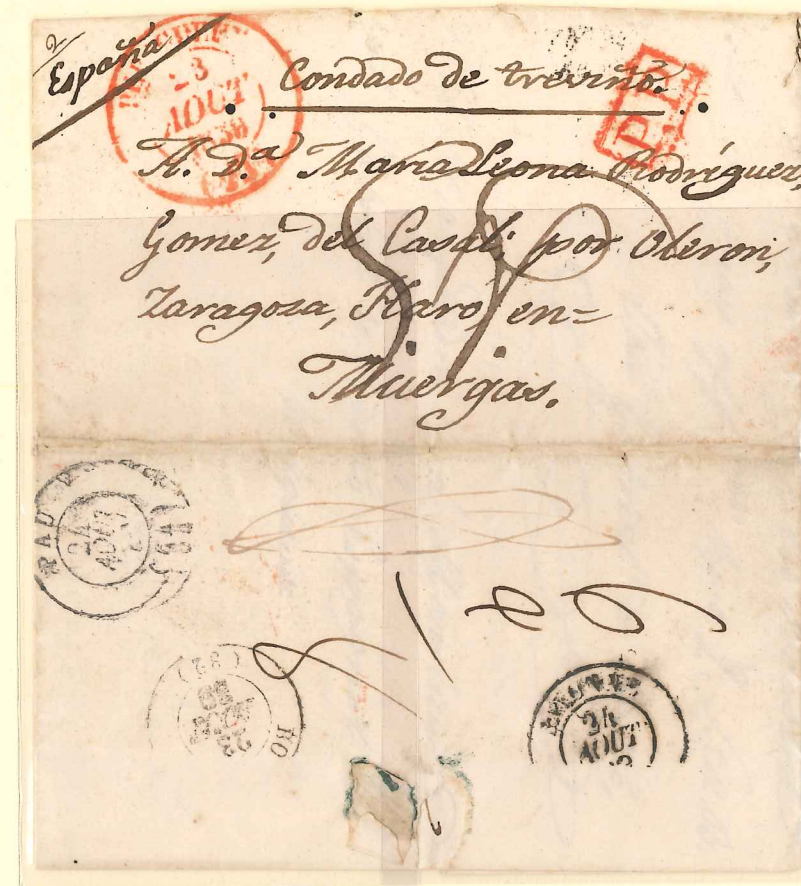 2/
España
23
AOUT
Condado de treviño.
P.P.
A. D.ª Maria Leona Rodríguez,
Gomez, del Casal; por Oleron,
Zaragoza, Haro, en=
Muergas.
PAU
24
AOUT
(64)
23
AOUT
BO
(32)
24
AOUT